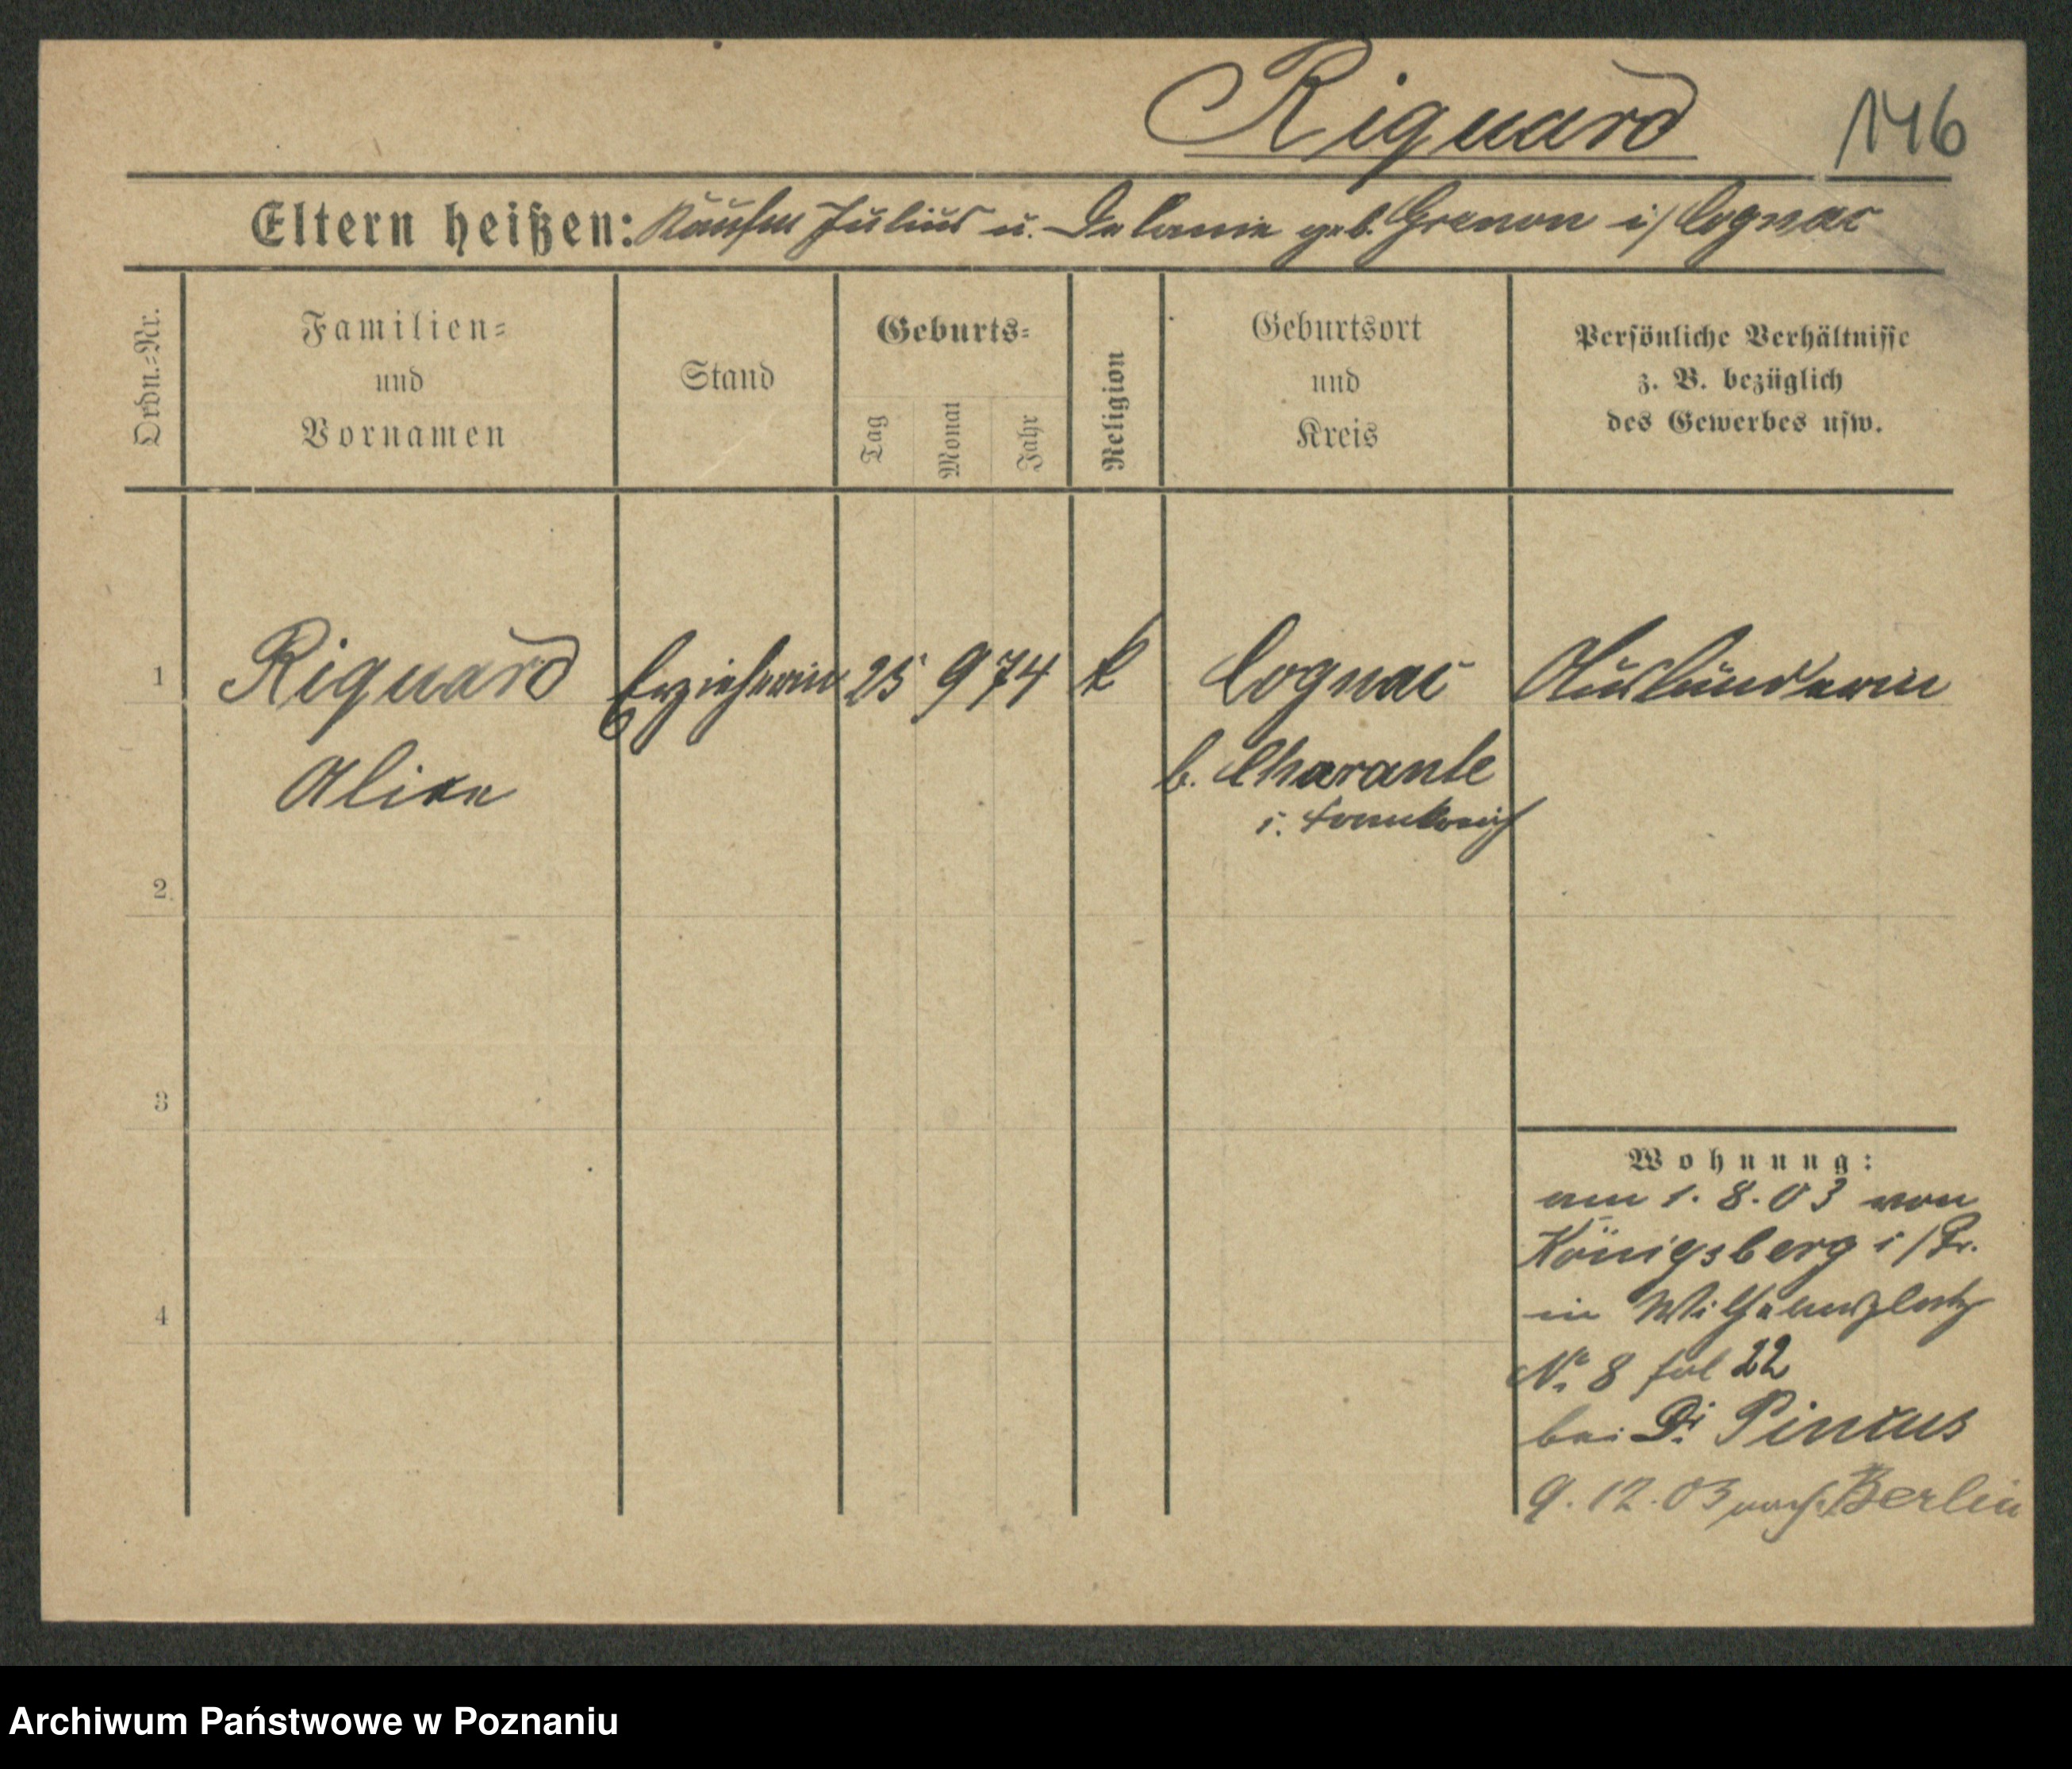 Riquard 146
Eltern heißen: Kaufm Julius u. Delanie geb. Grenon i/ Cognac
Ordn.=Nr.
Familien=
und
Vornamen
Stand
Geburts=
Tag
Monat
Jahr
Religion
Geburtsort
und
Kreis
Persönliche Verhältnisse
z. B. bezüglich
des Gewerbes usw.
1 Riquard Erzieherin 25 9 74 k Cognac Ausländerin
Alice b. Charante
i. Frankreich
2
3
4
Wohnung:
am 1. 8. 03 von
Königsberg i/Pr.
in Wilhelmsplatz
No 8 fol 22
bei Dr Pincus
9. 12. 03 nach Berlin
Archiwum Państwowe w Poznaniu